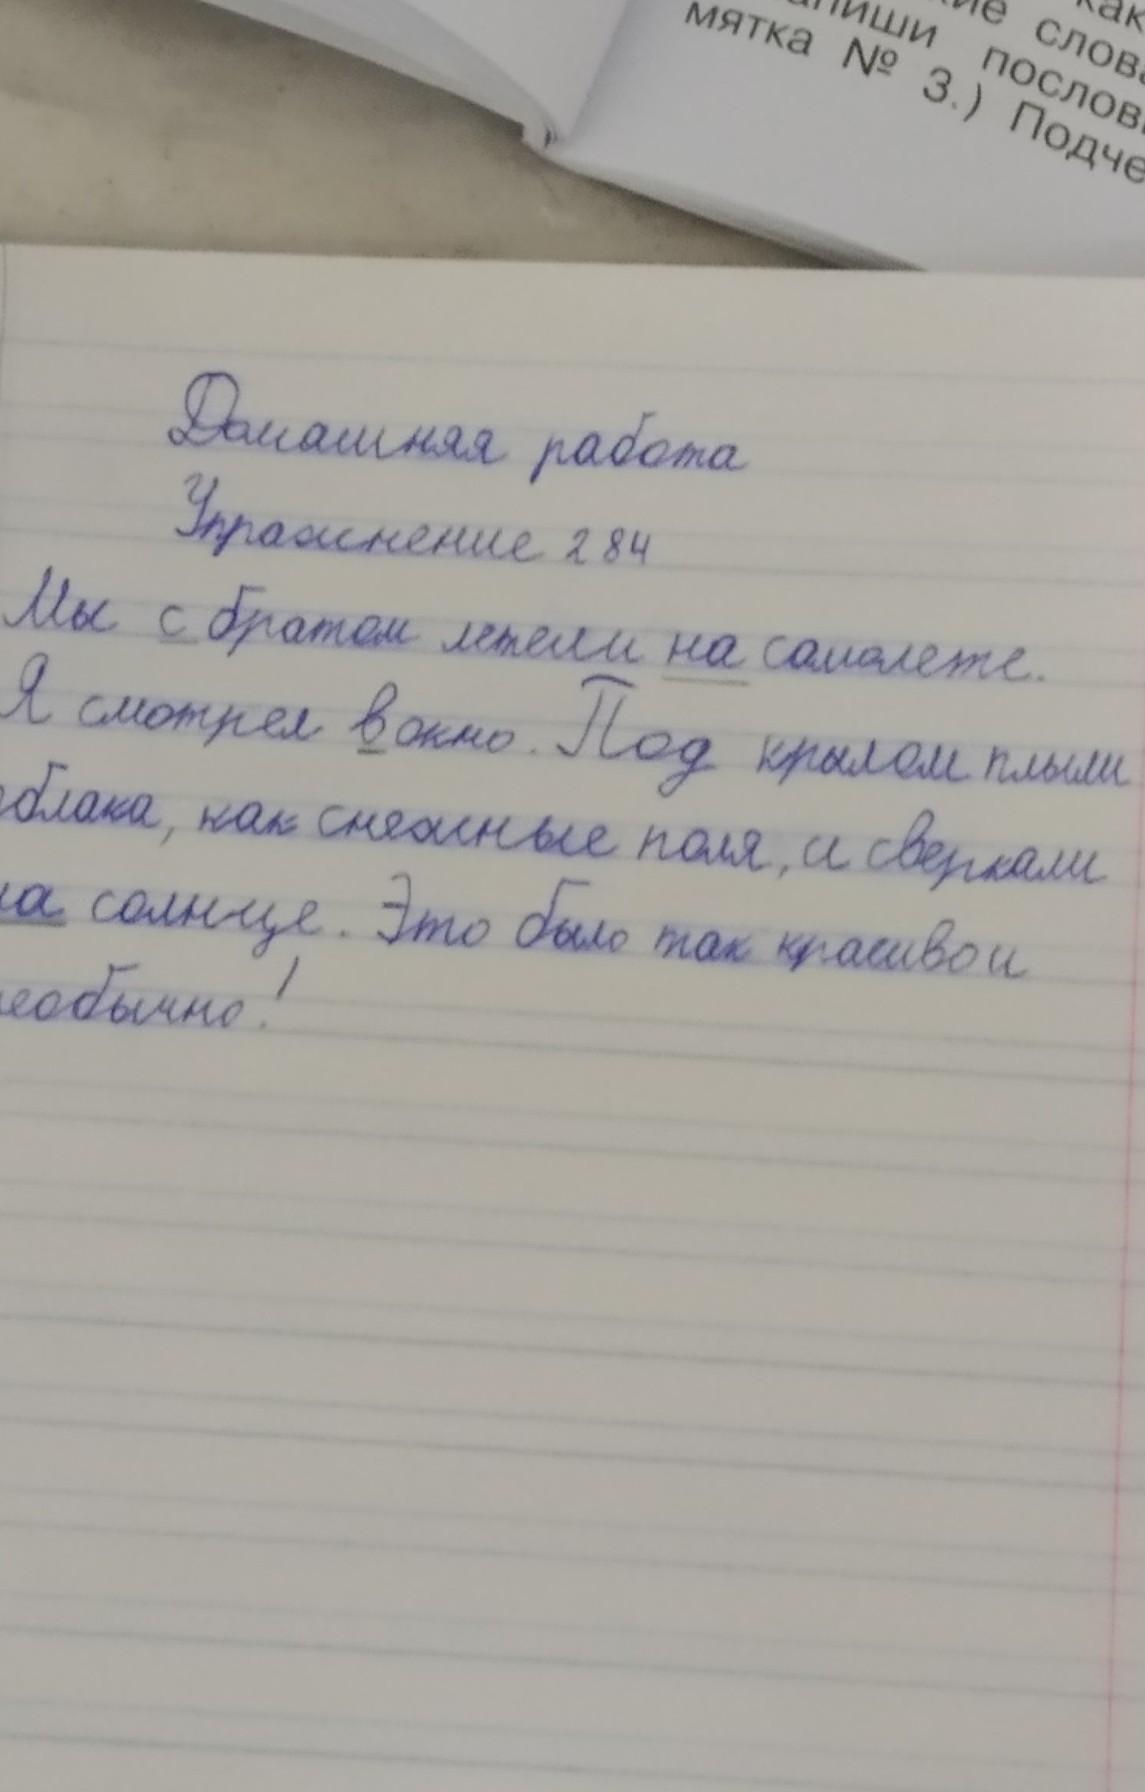 как
слова
апиши послов
мятка № 3.) Подче
Домашняя работа
Упражнение 284
Мы с братом летели на самолете.
Я смотрел в окно. Под крылом плыли
облака, как снежные поля, и сверкали
на солнце. Это было так красиво и
необычно!